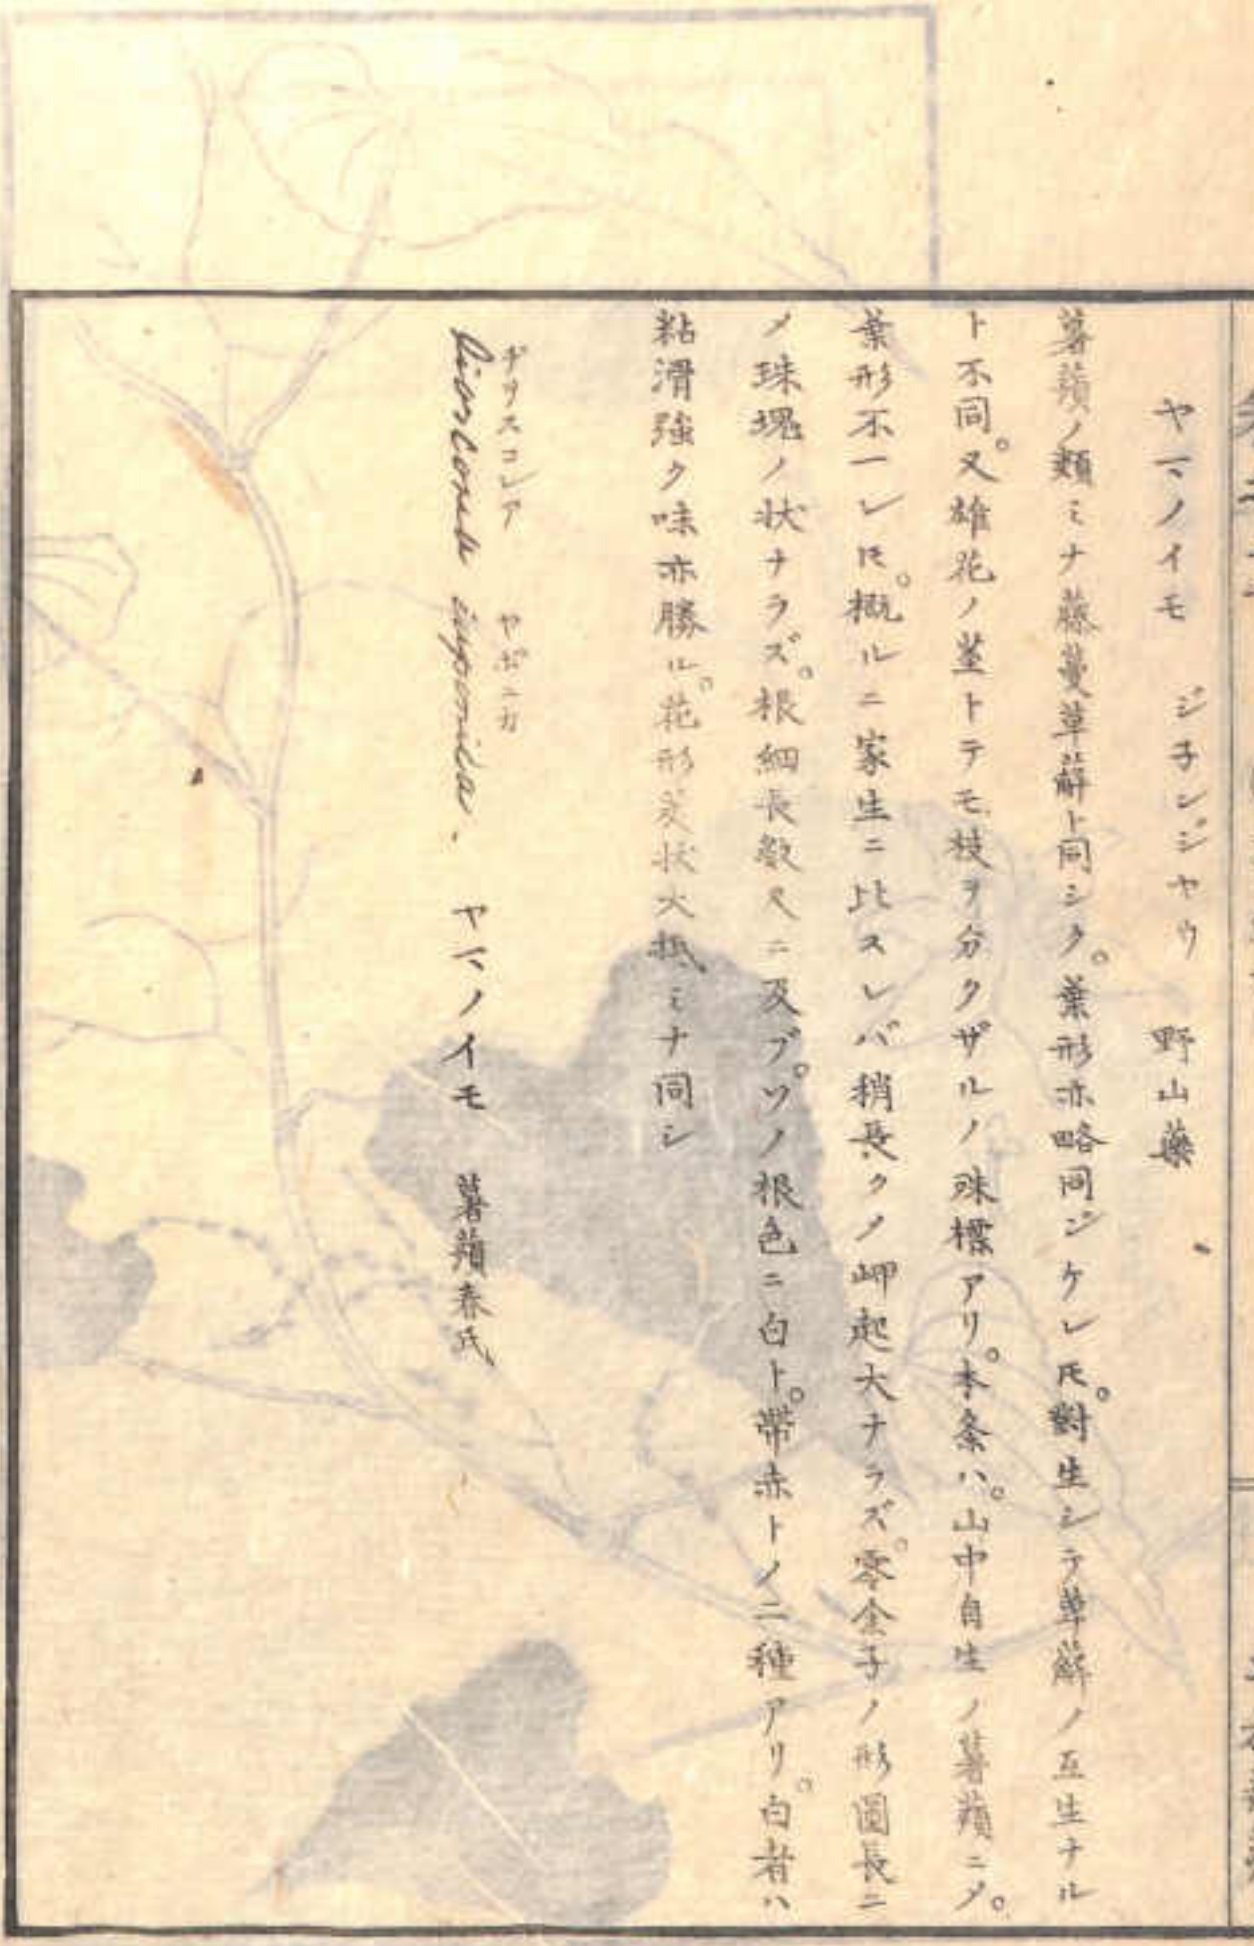 ヤマノイモ ジ子ンジヤウ 野山藥
薯蕷ノ類ミナ藤蔓萆薢ト同シク。葉形亦略同ジケレ𪜈。對生シテ萆薢ノ互生ナル
ト不同。又雄花ノ莖トテモ枝ヲ分クザルノ殊標アリ。本条ハ。山中自生ノ薯蕷ニメ。
葉形不一レ𪜈。概ルニ家生ニ比スレバ稍長クメ岬起大ナラズ。零余子ノ形圓長ニ
メ珠塊ノ状ナラズ。根細長数尺ニ及ブ。ソノ根色ニ白ト。帯赤トノ二種アリ。白者ハ
粘滑強ク味亦勝ル。花形莢状大抵ミナ同シ
ヂヲスコレア ヤポニカ
Dioscorea japonica. ヤマノイモ 薯蕷春氏